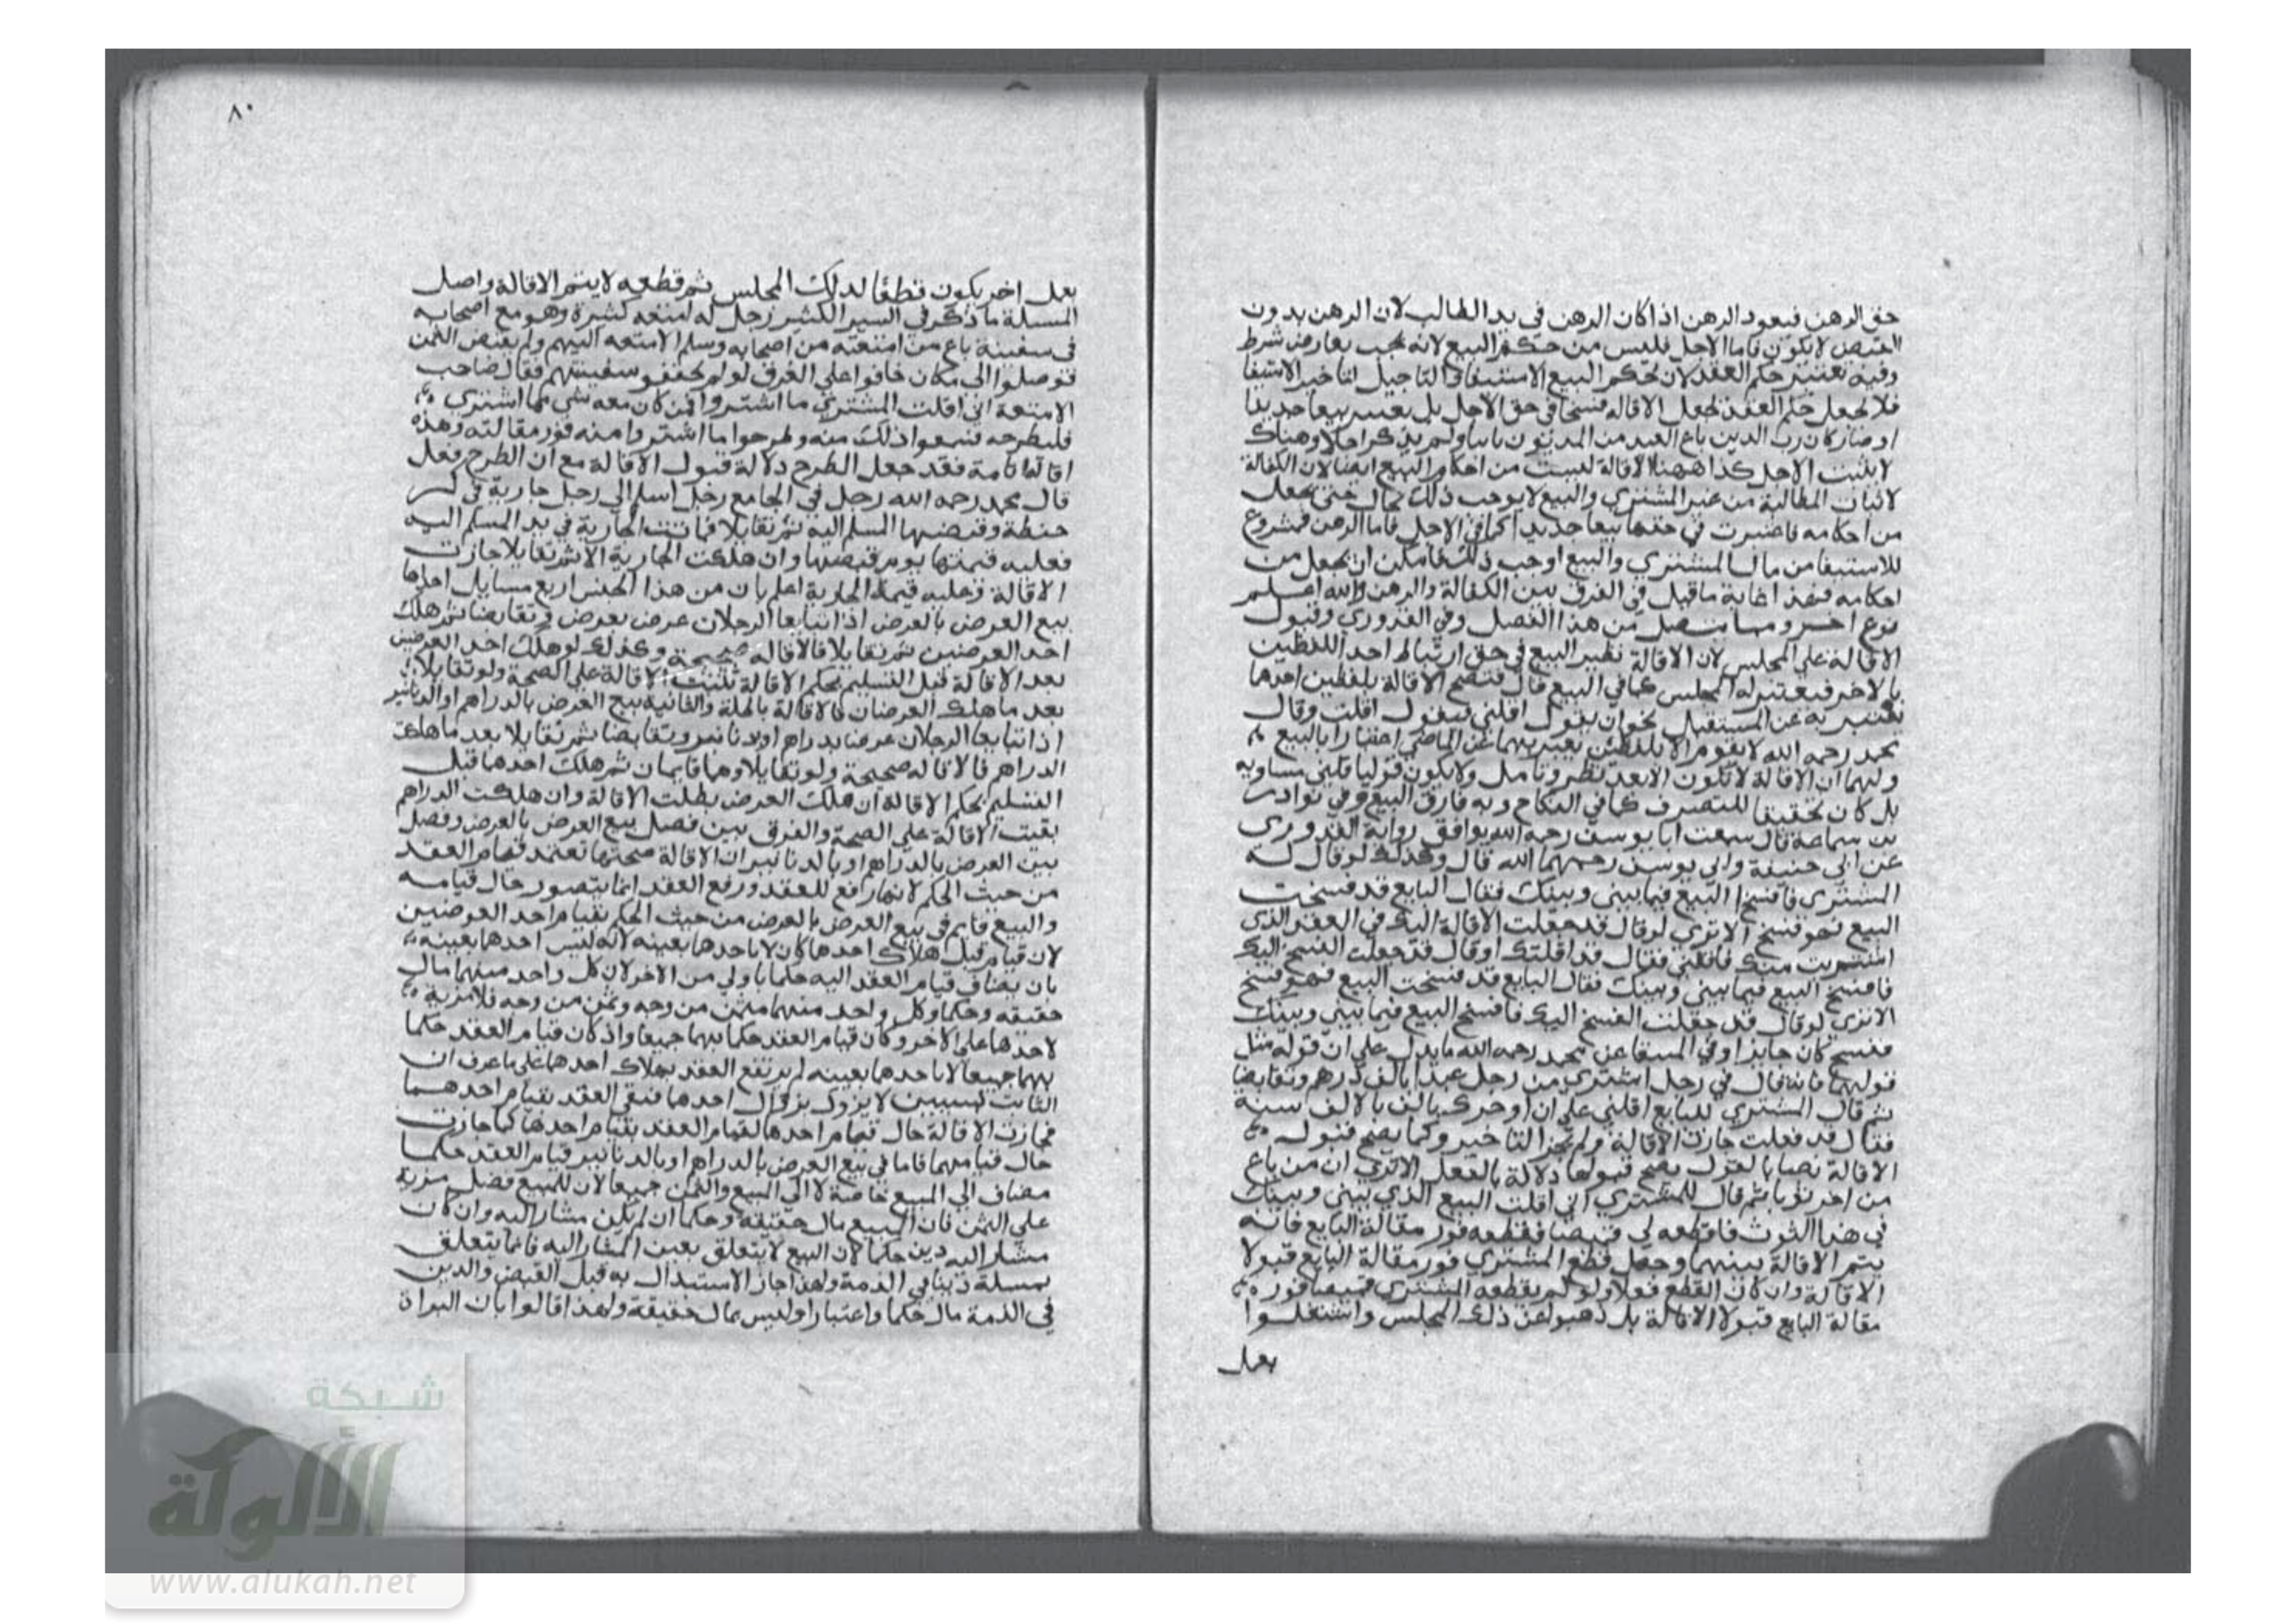 حق الرهن فيعود الرهن اذا كان الرهن في يد الطالب لان الرهن بدون
القبض لا يكون فاما الاجل فليس من حكم البيع لانه يجب بعارض شرط
وفيه تغيير حكم العقد لان حكم البيع الاستيفا والتاجيل لتاخير الاستيفا
فلا يجعل حكم العقد يجعل الاقالة فسخا في حق الاجل بل يعتبر بيعا جديدا
او صار كان رب الدين باع العبد من المديون ثانيا ولم يذكر اجلا وهناك
لا يثبت الاجل كذا ههنا الاقالة ليست من احكام البيع ايضا لان الكفالة
لاثبات المطالبة من غير المشتري والبيع لا يوجب ذلك بحال حتى يجعل
من احكامه فاعتبرت في حقها بيعا جديدا كما في الاجل فاما الرهن فمشروع
للاستيفا من مال المشتري والبيع اوجب ذلك فامكن ان يجعل من
احكامه فهذا غاية ما قيل في الفرق بين الكفالة والرهن والله اعلم
نوع اخر ومما يتصل من هذا الفصل وفي القدوري وقبول
الاقالة على المجلس لان الاقالة نظير البيع في حق ارتباط احد اللفظين
بالاخر فيعتبر له المجلس كما في البيع قال فتصح الاقالة بلفظين احدهما
يعبر به عن المستقبل نحو ان يقول اقلني فيقول اقلت وقال
محمد رحمه الله لا يقوم الا بلفظين يعبر بهما عن الماضي اعتبارا بالبيع
ولهما ان الاقالة لا تكون الا بعد نظر وتامل ولا يكون قوله اقلني مساومة
بل كان تحقيقا للتصرف كما في النكاح وبه فارق البيع وفي نوادر
بن سماعة قال سمعت ابا يوسف رحمه الله يوافق رواية القدوري
عن ابي حنيفة وابي يوسف رحمهما الله قال وكذلك لو قال له
المشتري فافسخ البيع فيما بيني وبينك فقال البايع قد فسخت
البيع فهو فسخ الا ترى لو قال قد جعلت الاقالة اليك في العقد الذي
اشتريت منك فاقلني فقال قد اقلتك او قال قد جعلت الفسخ اليك
فافسخ البيع فيما بيني وبينك فقال البايع قد فسخت البيع فهو فسخ
الا ترى لو قال قد جعلت الفسخ اليك فافسخ البيع فيما بيني وبينك
ففسخ كان جايزا وفي المنتقا عن محمد رحمه الله ما يدل على ان قوله مثل
قولهما فانه قال في رجل اشترى من رجل عبدا بالف درهم وتقابضا
ثم قال المشتري للبايع اقلني على ان اوخرك بالف سنة
فقال قد فعلت جازت الاقالة ولم يجز التاخير وكما يصح قبول
الاقالة نصا بالقول يصح قبولها دلالة بالفعل الا ترى ان من باع
من اخر ثوبا ثم قال للمشتري اني اقلت البيع الذي بيني وبينك
في هذا الثوب فاقطعه لي قميصا فقطعه فور مقالة البايع فانه
يتم الاقالة بينهما وجعل قطع المشتري فور مقالة البايع قبولا
الاقالة وان كان القطع فعلا ولو لم يقطعه المشتري قميصا فور
مقالة البايع قبولا الاقالة بل ذهبوا عن ذلك المجلس واشتغلوا
بعمل
٨٠
بعمل اخر يكون قطعا لذلك المجلس ثم قطعه لا يتم الاقالة واصل
المسلة ما ذكر في السير الكبير رجل له امتعة كثيرة وهو مع اصحابه
في سفينة باع من امتعته من اصحابه وسلم الامتعة اليهم ولم يقبض الثمن
فوصلوا الى مكان خافوا على الغرق لو لم يخففوا سفينتهم فقال صاحب
الامتعة اني اقلت المشتري ما اشتروا فمن كان معه شي مما اشترى
فليطرحه فسمعوا ذلك منه وطرحوا ما اشتروا منه فور مقالته وهذه
اقالة تامة فقد جعل الطرح دلالة قبول الاقالة مع ان الطرح فعل
قال محمد رحمه الله رجل في الجامع رجل اسلم الى رجل جارية في كر
حنطة وقبضها المسلم اليه ثم تقايلا فماتت الجارية في يد المسلم اليه
فعليه قيمتها يوم قبضها وان هلكت الجارية الا ثم تقايلا جازت
الاقالة وعليه قيمة الجارية اعلم بان من هذا الجنس اربع مسايل احدها
بيع العرض بالعرض اذا تبايعا الرجلان عرض بعرض وتقابضا ثم هلك
احد العرضين ثم تقايلا فالاقالة صحيحة وكذلك لو هلك احد العرضين
بعد الاقالة قبل التسليم بحكم الاقالة تثبت الاقالة على الصحة ولو تقايلا
بعد ما هلك العرضان فالاقالة باطلة والثانية بيع العرض بالدراهم او الدنانير
اذا تبايعا الرجلان عرضا بدراهم او دنانير وتقابضا ثم تقايلا بعد ما هلكت
الدراهم فالاقالة صحيحة ولو تقايلا وهما قايمان ثم هلك احدهما قبل
التسليم بحكم الاقالة ان هلك العرض بطلت الاقالة وان هلكت الدراهم
بقيت الاقالة على الصحة والفرق بين فصل بيع العرض بالعرض وفصل
بين العرض بالدراهم او بالدنانير ان الاقالة صحتها تعتمد قيام العقد
من حيث الحكم لانها رفع للعقد ورفع العقد انما يتصور حال قيامه
والبيع قايم في بيع العرض بالعرض من حيث الحكم بقيام احد العرضين
لان قيام قبل هلاك احدهما كان لا باحدهما بعينه لانه ليس احدهما بعينه
بان يضاف قيام العقد اليه حكما باولى من الاخر لان كل واحد منهما مال
حقيقة وحكما وكل واحد منهما مثمن من وجه وثمن من وجه فلا مزية
لاحدهما على الاخر وكان قيام العقد حكما بهما جميعا واذ كان قيام العقد حكما
بهما جميعا لا باحدهما بعينه لم يرتفع العقد بهلاك احدهما على ما عرف ان
الثابت لسببين لا يزول بزوال احدهما فبقى العقد بقيام احدهما
فجازت الاقالة حال قيام احدهما لقيام العقد بقيام احدهما كما جازت
حال قيامهما فاما في بيع العرض بالدراهم او بالدنانير قيام العقد حكما
مضاف الى المبيع خاصة لا الى المبيع والثمن جميعا لان للمبيع فضل مزية
على الثمن فان المبيع مال حقيقة وحكما ان لم يكن مشار اليه وان كان
مشار اليه دين حكما لان البيع لا يتعلق بعين المشار اليه فانما يتعلق
بمسلة دينا في الذمة ولهذا جاز الاستبدال به قبل القبض والدين
في الذمة مال حكما واعتبارا وليس بمال حقيقة ولهذا قالوا بان البراة
شبكة
الألوكة
www.alukah.net